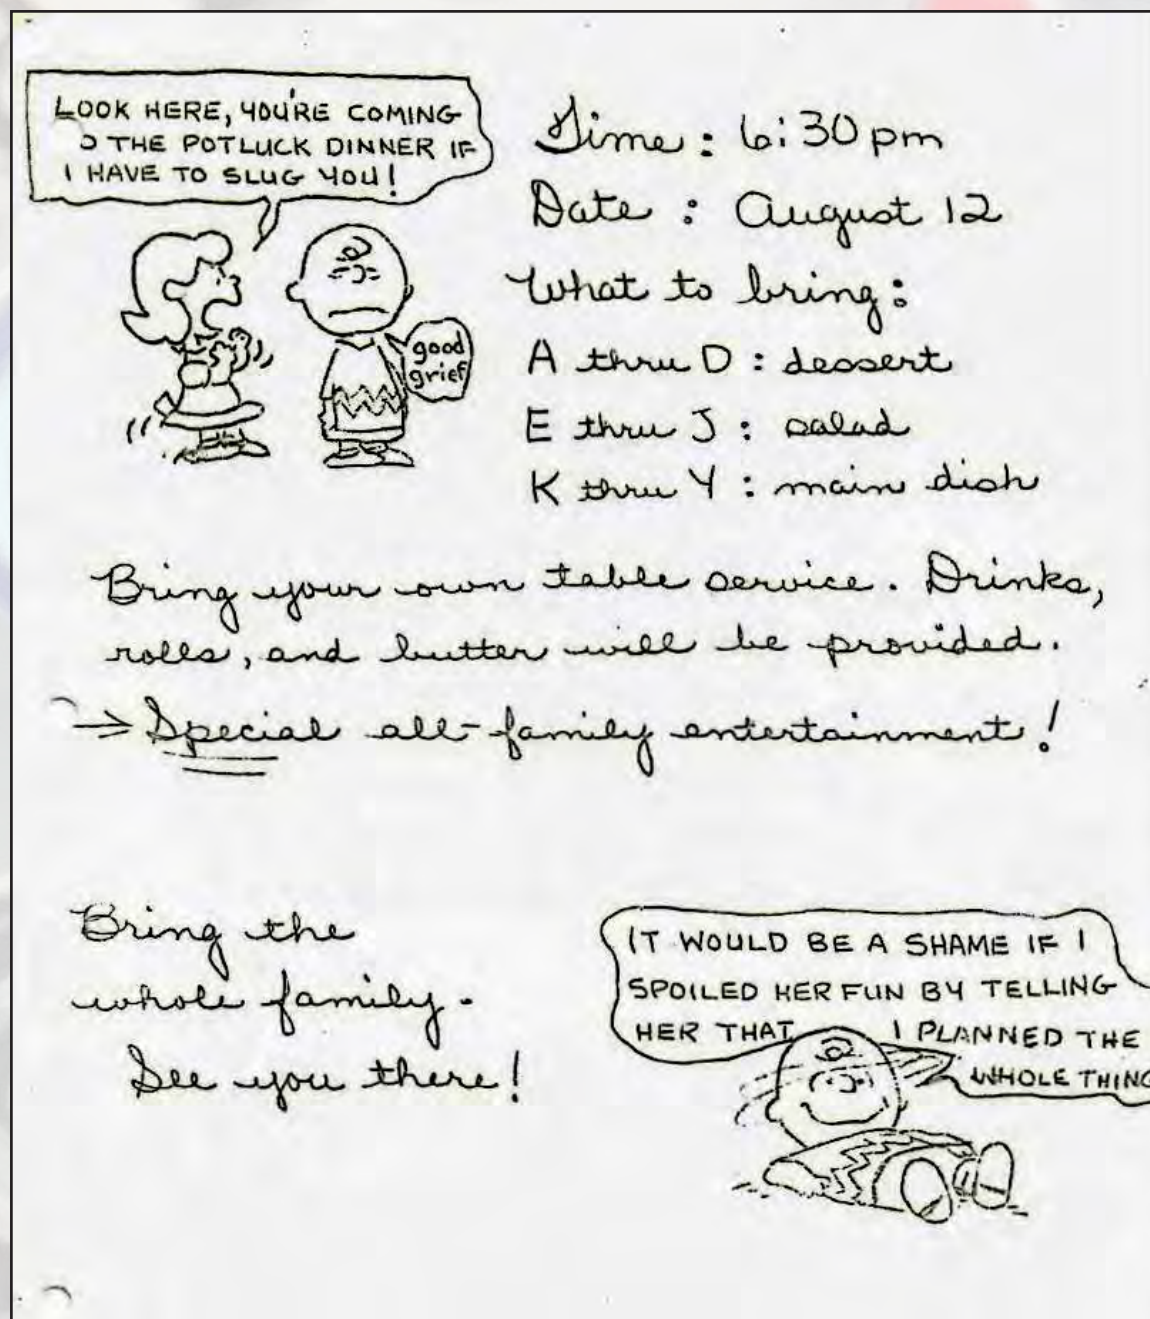 LOOK HERE, YOU'RE COMING
O THE POTLUCK DINNER IF
I HAVE TO SLUG YOU!
good
grief
Time: 6:30 pm
Date: August 12
What to bring:
A thru D: dessert
E thru J: salad
K thru Y: main dish
Bring your own table service. Drinks,
rolls, and butter will be provided.
→ Special all-family entertainment!
Bring the
whole family.
See you there!
IT WOULD BE A SHAME IF I
SPOILED HER FUN BY TELLING
HER THAT I PLANNED THE
WHOLE THING